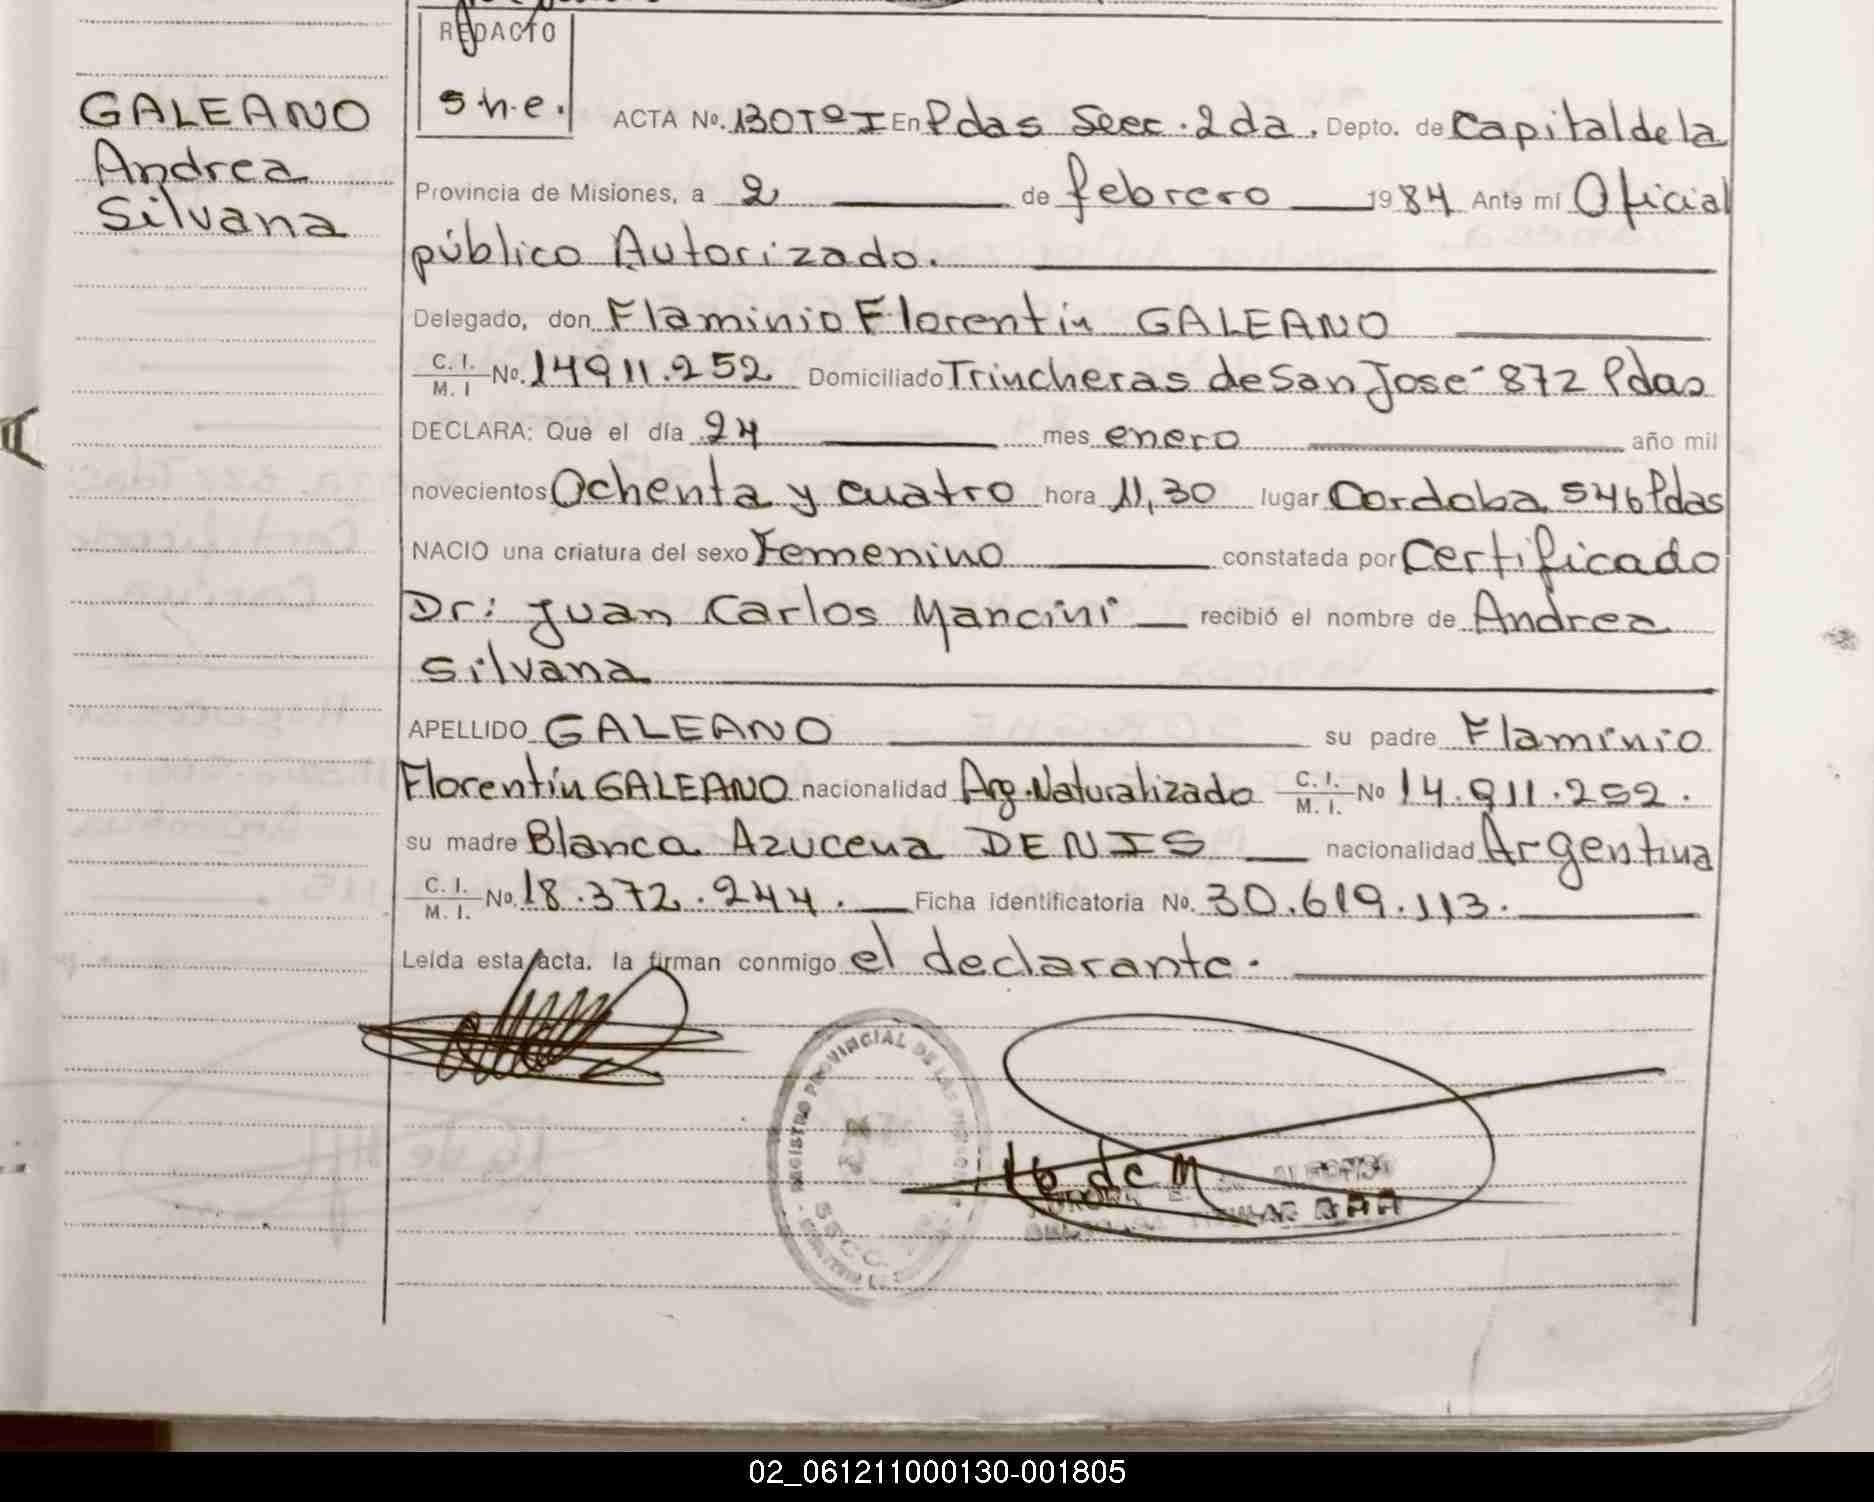 REDACTO
s.h.e.
GALEANO
Andrea
Silvana
ACTA No. 130Tº I En Pdas Secc. 2da. Depto. de Capital de la
Provincia de Misiones, a 2 de febrero 1984 Ante mí Oficial
público Autorizado.
Delegado, don Flaminio Florentín GALEANO
C. I. M. I No. 14911.252 Domiciliado Trincheras de San José 872 Pdas
DECLARA: Que el día 24 mes enero año mil
novecientos Ochenta y cuatro hora 11,30 lugar Cordoba 546 Pdas
NACIO una criatura del sexo Femenino constatada por Certificado
Dr: Juan Carlos Mancini recibió el nombre de Andrea
Silvana
APELLIDO GALEANO su padre Flaminio
Florentín GALEANO nacionalidad Arg. Naturalizado C. I. M. I. No 14.911.252.
su madre Blanca Azucena DENIS nacionalidad Argentina
C. I. M. I. No. 18.372.244. Ficha identificatoria No. 30.619.113.
Leída esta acta. la firman conmigo el declarante.
REGISTRO PROVINCIAL DE LAS
SECC.
ALFONSO
TITULAR
02_061211000130-001805